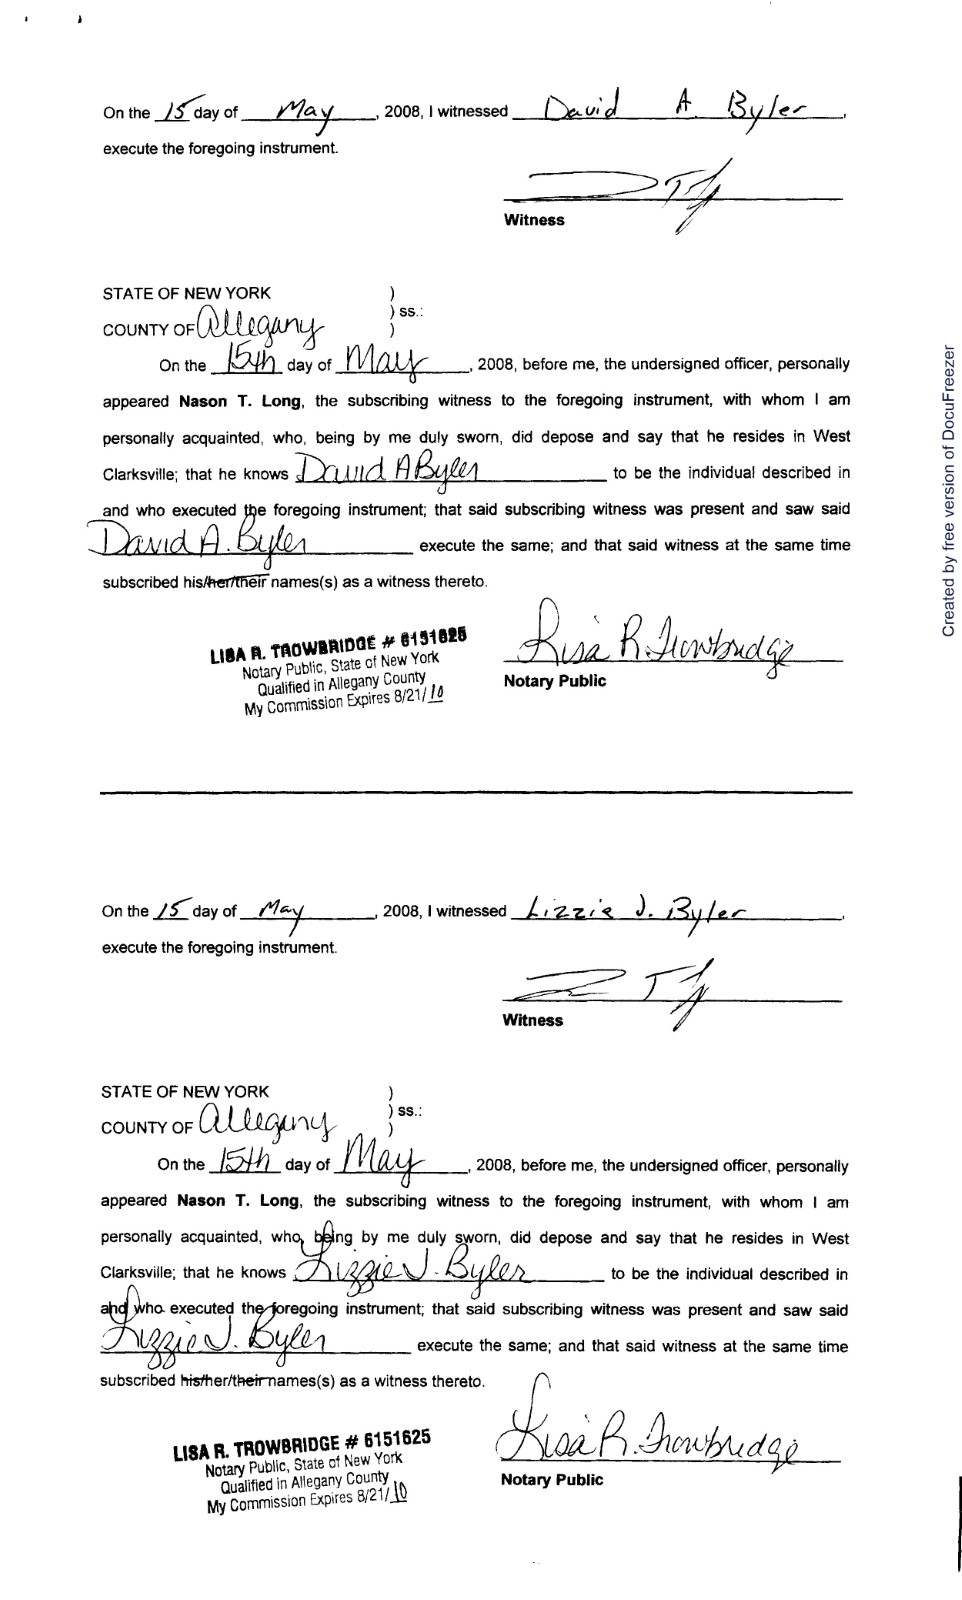 On the 15 day of May, 2008, I witnessed David A. Byler,
execute the foregoing instrument.
Witness
STATE OF NEW YORK )
) ss.:
COUNTY OF Allegany )
On the 15th day of May, 2008, before me, the undersigned officer, personally
appeared Nason T. Long, the subscribing witness to the foregoing instrument, with whom I am
personally acquainted, who, being by me duly sworn, did depose and say that he resides in West
Clarksville; that he knows David A Byler to be the individual described in
and who executed the foregoing instrument; that said subscribing witness was present and saw said
David A. Byler execute the same; and that said witness at the same time
subscribed his/her/their names(s) as a witness thereto.
Lisa R. Trowbridge
LISA R. TROWBRIDGE # 6151625
Notary Public, State of New York
Qualified in Allegany County
My Commission Expires 8/21/10
Notary Public
On the 15 day of May, 2008, I witnessed Lizzie J. Byler,
execute the foregoing instrument.
Witness
STATE OF NEW YORK )
) ss.:
COUNTY OF Allegany )
On the 15th day of May, 2008, before me, the undersigned officer, personally
appeared Nason T. Long, the subscribing witness to the foregoing instrument, with whom I am
personally acquainted, who, being by me duly sworn, did depose and say that he resides in West
Clarksville; that he knows Lizzie J. Byler to be the individual described in
and who executed the foregoing instrument; that said subscribing witness was present and saw said
Lizzie J. Byler execute the same; and that said witness at the same time
subscribed his/her/their names(s) as a witness thereto.
Lisa R. Trowbridge
LISA R. TROWBRIDGE # 6151625
Notary Public, State of New York
Qualified in Allegany County
My Commission Expires 8/21/10
Notary Public
Created by free version of DocuFreezer